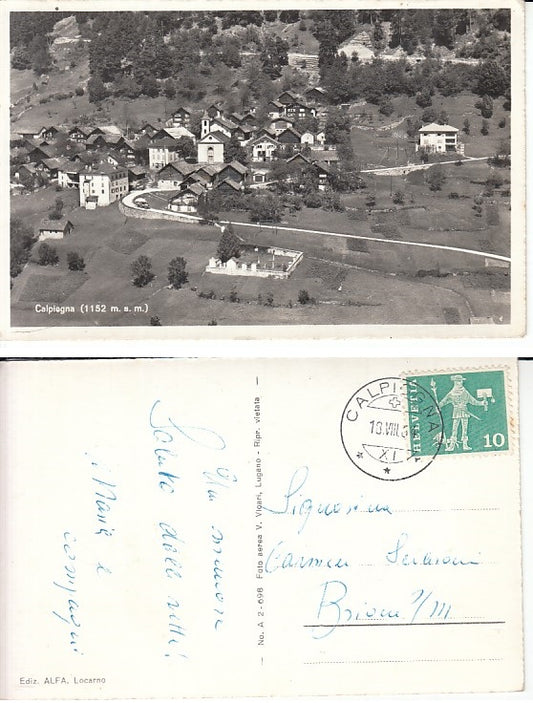 Calpiogna (1152 m. s. m.)
CALPIOGNA
18.VIII.6
XI
HELVETIA
10
Un
Saluto dalle vette!
Maria e
compagni
No. A 2-698 Foto aerea V. Vicari, Lugano - Ripr. vietata
Signorina
Carmen
Brione s/M.
Ediz. ALFA, Locarno